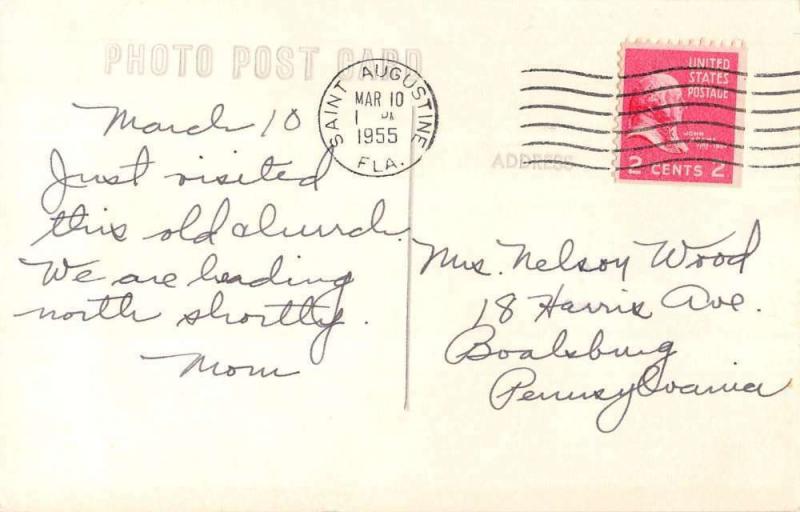 PHOTO POST CARD
SAINT AUGUSTINE
MAR 10
1955
FLA.
UNITED
STATES
POSTAGE
JOHN
2 CENTS 2
ADDRESS
March 10
Just visited
this old church.
We are heading
north shortly.
Mom
Mrs. Nelson Wood
18 Harris Ave.
Boalsburg
Pennsylvania